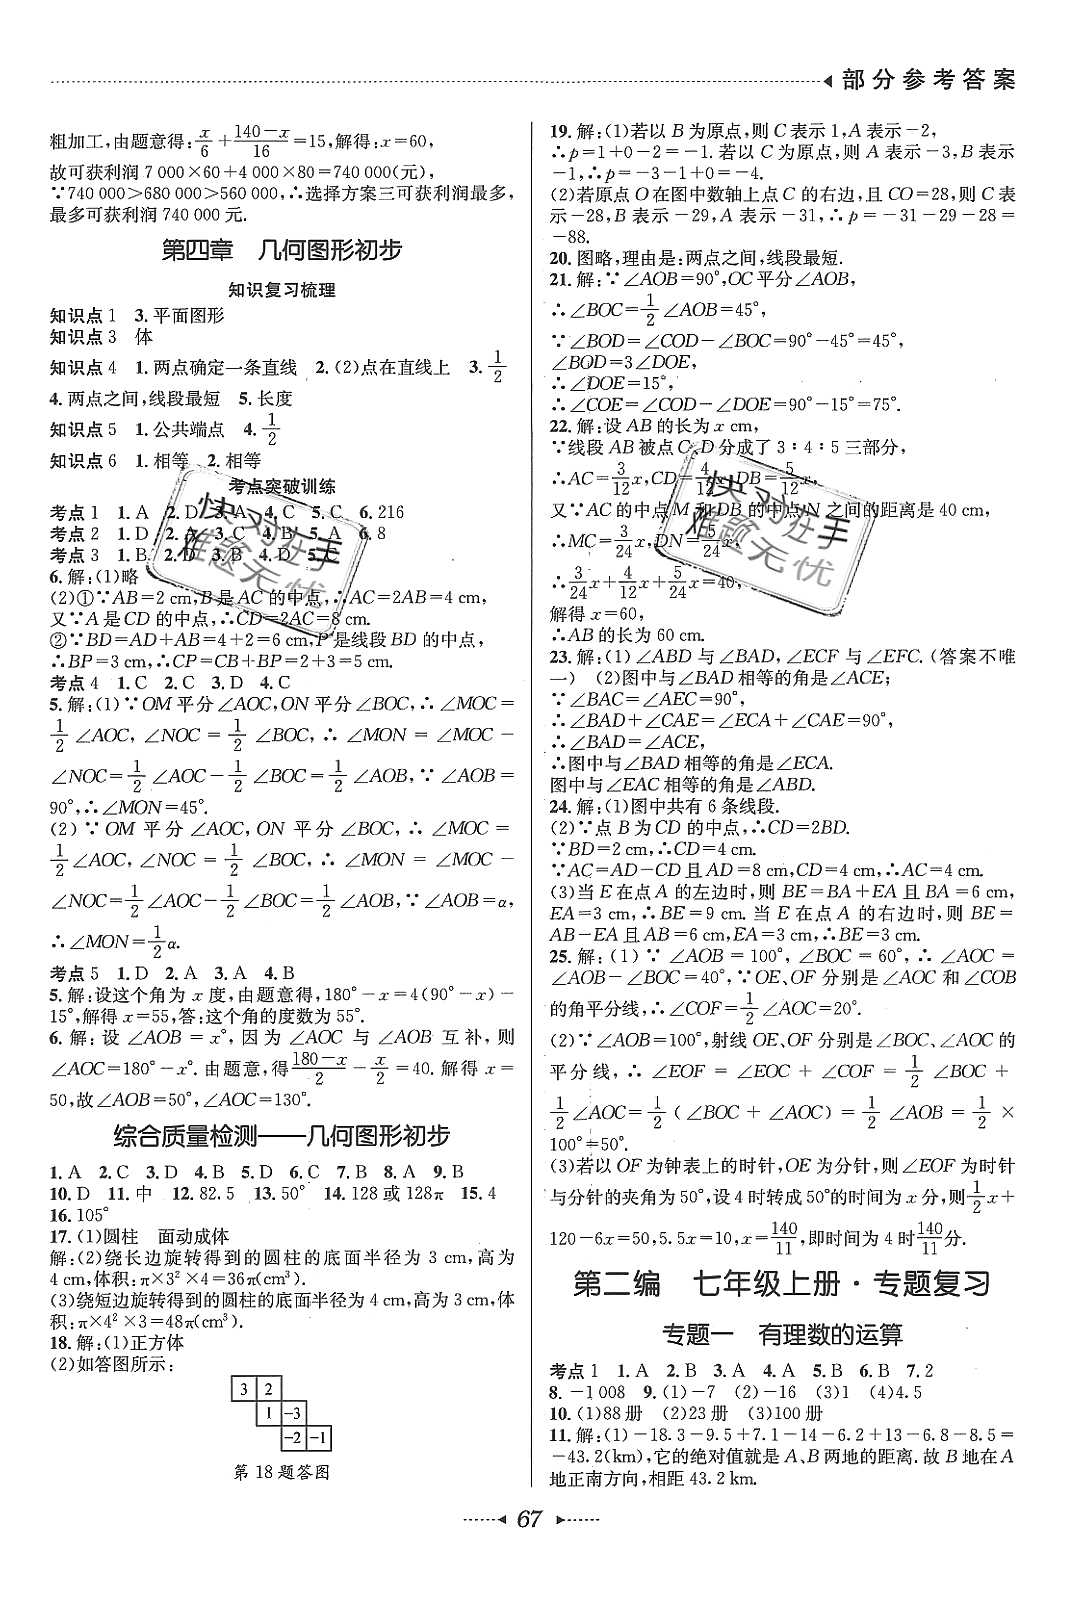 部分参考答案
粗加工,由题意得:x/6+(140-x)/16=15,解得:x=60,
故可获利润 7 000×60+4 000×80=740000(元),
∵740 000>680 000>560 000,∴选择方案三可获利润最多,
最多可获利润 740 000 元.
第四章 几何图形初步
知识复习梳理
知识点 1 3.平面图形
知识点 3 体
知识点 4 1.两点确定一条直线 2.(2)点在直线上 3.1/2
4.两点之间,线段最短 5.长度
知识点 5 1.公共端点 4.1/2
知识点 6 1.相等 2.相等
考点突破训练
考点 1 1.A 2.D 3.A 4.C 5.C 6.216
考点 2 1.D 2.A 3.C 4.B 5.A 6.8
考点 3 1.B 2.D 3.B 4.D 5.C
6.解:(1)略
(2)①∵AB=2 cm,B 是 AC 的中点,∴AC=2AB=4 cm,
又∵A 是 CD 的中点,∴CD=2AC=8 cm.
②∵BD=AD+AB=4+2=6 cm,P 是线段 BD 的中点,
∴BP=3 cm,∴CP=CB+BP=2+3=5 cm.
考点 4 1.C 2.C 3.D 4.C
5.解:(1)∵OM 平分∠AOC,ON 平分∠BOC,∴∠MOC=
1/2∠AOC,∠NOC=1/2∠BOC,∴∠MON=∠MOC-
∠NOC=1/2∠AOC-1/2∠BOC=1/2∠AOB,∵∠AOB=
90°,∴∠MON=45°.
(2)∵OM 平分∠AOC,ON 平分∠BOC,∴∠MOC=
1/2∠AOC,∠NOC=1/2∠BOC,∴∠MON=∠MOC-
∠NOC=1/2∠AOC-1/2∠BOC=1/2∠AOB,∵∠AOB=α,
∴∠MON=1/2α.
考点 5 1.D 2.A 3.A 4.B
5.解:设这个角为 x 度,由题意得,180°-x=4(90°-x)-
15°,解得 x=55,答:这个角的度数为 55°.
6.解:设∠AOB=x°,因为∠AOC 与∠AOB 互补,则
∠AOC=180°-x°.由题意,得(180-x)/2-x/2=40.解得 x=
50,故∠AOB=50°,∠AOC=130°.
综合质量检测——几何图形初步
1.A 2.C 3.D 4.B 5.D 6.C 7.B 8.A 9.B
10.D 11.中 12.82.5 13.50° 14.128 或 128π 15.4
16.105°
17.(1)圆柱 面动成体
解:(2)绕长边旋转得到的圆柱的底面半径为 3 cm,高为
4 cm,体积:π×3²×4=36π(cm³).
(3)绕短边旋转得到的圆柱的底面半径为 4 cm,高为 3 cm,体
积:π×4²×3=48π(cm³).
18.解:(1)正方体
(2)如答图所示:
3 2
1 -3
-2 -1
第 18 题答图
19.解:(1)若以 B 为原点,则 C 表示 1,A 表示-2,
∴p=1+0-2=-1.若以 C 为原点,则 A 表示-3,B 表示
-1,∴p=-3-1+0=-4.
(2)若原点 O 在图中数轴上点 C 的右边,且 CO=28,则 C 表
示-28,B 表示-29,A 表示-31,∴p=-31-29-28=
-88.
20.图略,理由是:两点之间,线段最短.
21.解:∵∠AOB=90°,OC 平分∠AOB,
∴∠BOC=1/2∠AOB=45°,
∵∠BOD=∠COD-∠BOC=90°-45°=45°,
∠BOD=3∠DOE,
∴∠DOE=15°,
∴∠COE=∠COD-∠DOE=90°-15°=75°.
22.解:设 AB 的长为 x cm,
∵线段 AB 被点 C、D 分成了 3∶4∶5 三部分,
∴AC=3/12x,CD=4/12x,DB=5/12x,
又∵AC 的中点 M 和 DB 的中点 N 之间的距离是 40 cm,
∴MC=3/24x,DN=5/24x,
∴3/24x+4/12x+5/24x=40,
解得 x=60,
∴AB 的长为 60 cm.
23.解:(1)∠ABD 与∠BAD,∠ECF 与∠EFC.(答案不唯
一) (2)图中与∠BAD 相等的角是∠ACE;
∵∠BAC=∠AEC=90°,
∴∠BAD+∠CAE=∠ECA+∠CAE=90°,
∴∠BAD=∠ACE,
∴图中与∠BAD 相等的角是∠ECA.
图中与∠EAC 相等的角是∠ABD.
24.解:(1)图中共有 6 条线段.
(2)∵点 B 为 CD 的中点,∴CD=2BD.
∵BD=2 cm,∴CD=4 cm.
∵AC=AD-CD 且 AD=8 cm,CD=4 cm,∴AC=4 cm.
(3)当 E 在点 A 的左边时,则 BE=BA+EA 且 BA=6 cm,
EA=3 cm,∴BE=9 cm.当 E 在点 A 的右边时,则 BE=
AB-EA 且 AB=6 cm,EA=3 cm,∴BE=3 cm.
25.解:(1)∵∠AOB=100°,∠BOC=60°,∴∠AOC=
∠AOB-∠BOC=40°,∵OE、OF 分别是∠AOC 和∠COB
的角平分线,∴∠COF=1/2∠AOC=20°.
(2)∵∠AOB=100°,射线 OE、OF 分别是∠BOC、∠AOC 的
平分线,∴∠EOF=∠EOC+∠COF=1/2∠BOC+
1/2∠AOC=1/2(∠BOC+∠AOC)=1/2∠AOB=1/2×
100°=50°.
(3)若以 OF 为钟表上的时针,OE 为分针,则∠EOF 为时针
与分针的夹角为 50°,设 4 时转成 50°的时间为 x 分,则1/2x+
120-6x=50,5.5x=10,x=140/11,即时间为 4 时140/11分.
第二编 七年级上册·专题复习
专题一 有理数的运算
考点 1 1.A 2.B 3.A 4.A 5.B 6.B 7.2
8.-1008 9.(1)-7 (2)-16 (3)1 (4)4.5
10.(1)88 册 (2)23 册 (3)100 册
11.解:(1)-18.3-9.5+7.1-14-6.2+13-6.8-8.5=
-43.2(km),它的绝对值就是 A、B 两地的距离.故 B 地在 A
地正南方向,相距 43.2 km.
67
快对在手
难题无忧
快对在手
难题无忧